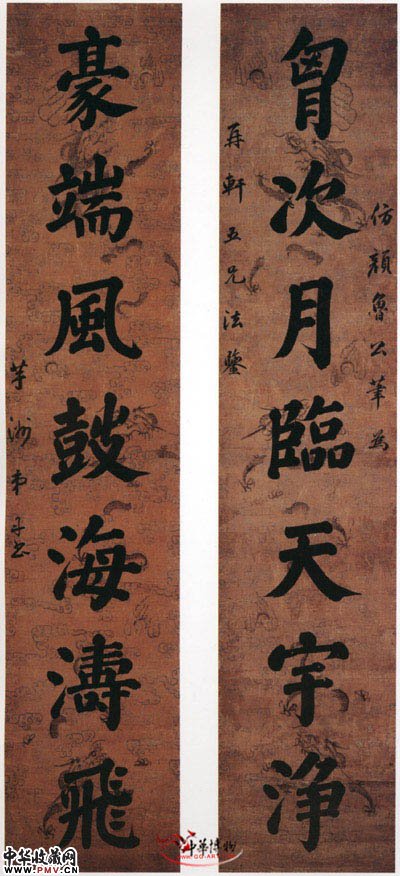 仿顏魯公筆為
胷次月臨天宇净
再軒五兄法鑒
豪端風鼓海濤飛
芋洲弟
中华收藏网
www.PMV.cn
中華博物
WWW.GG-ART.COM